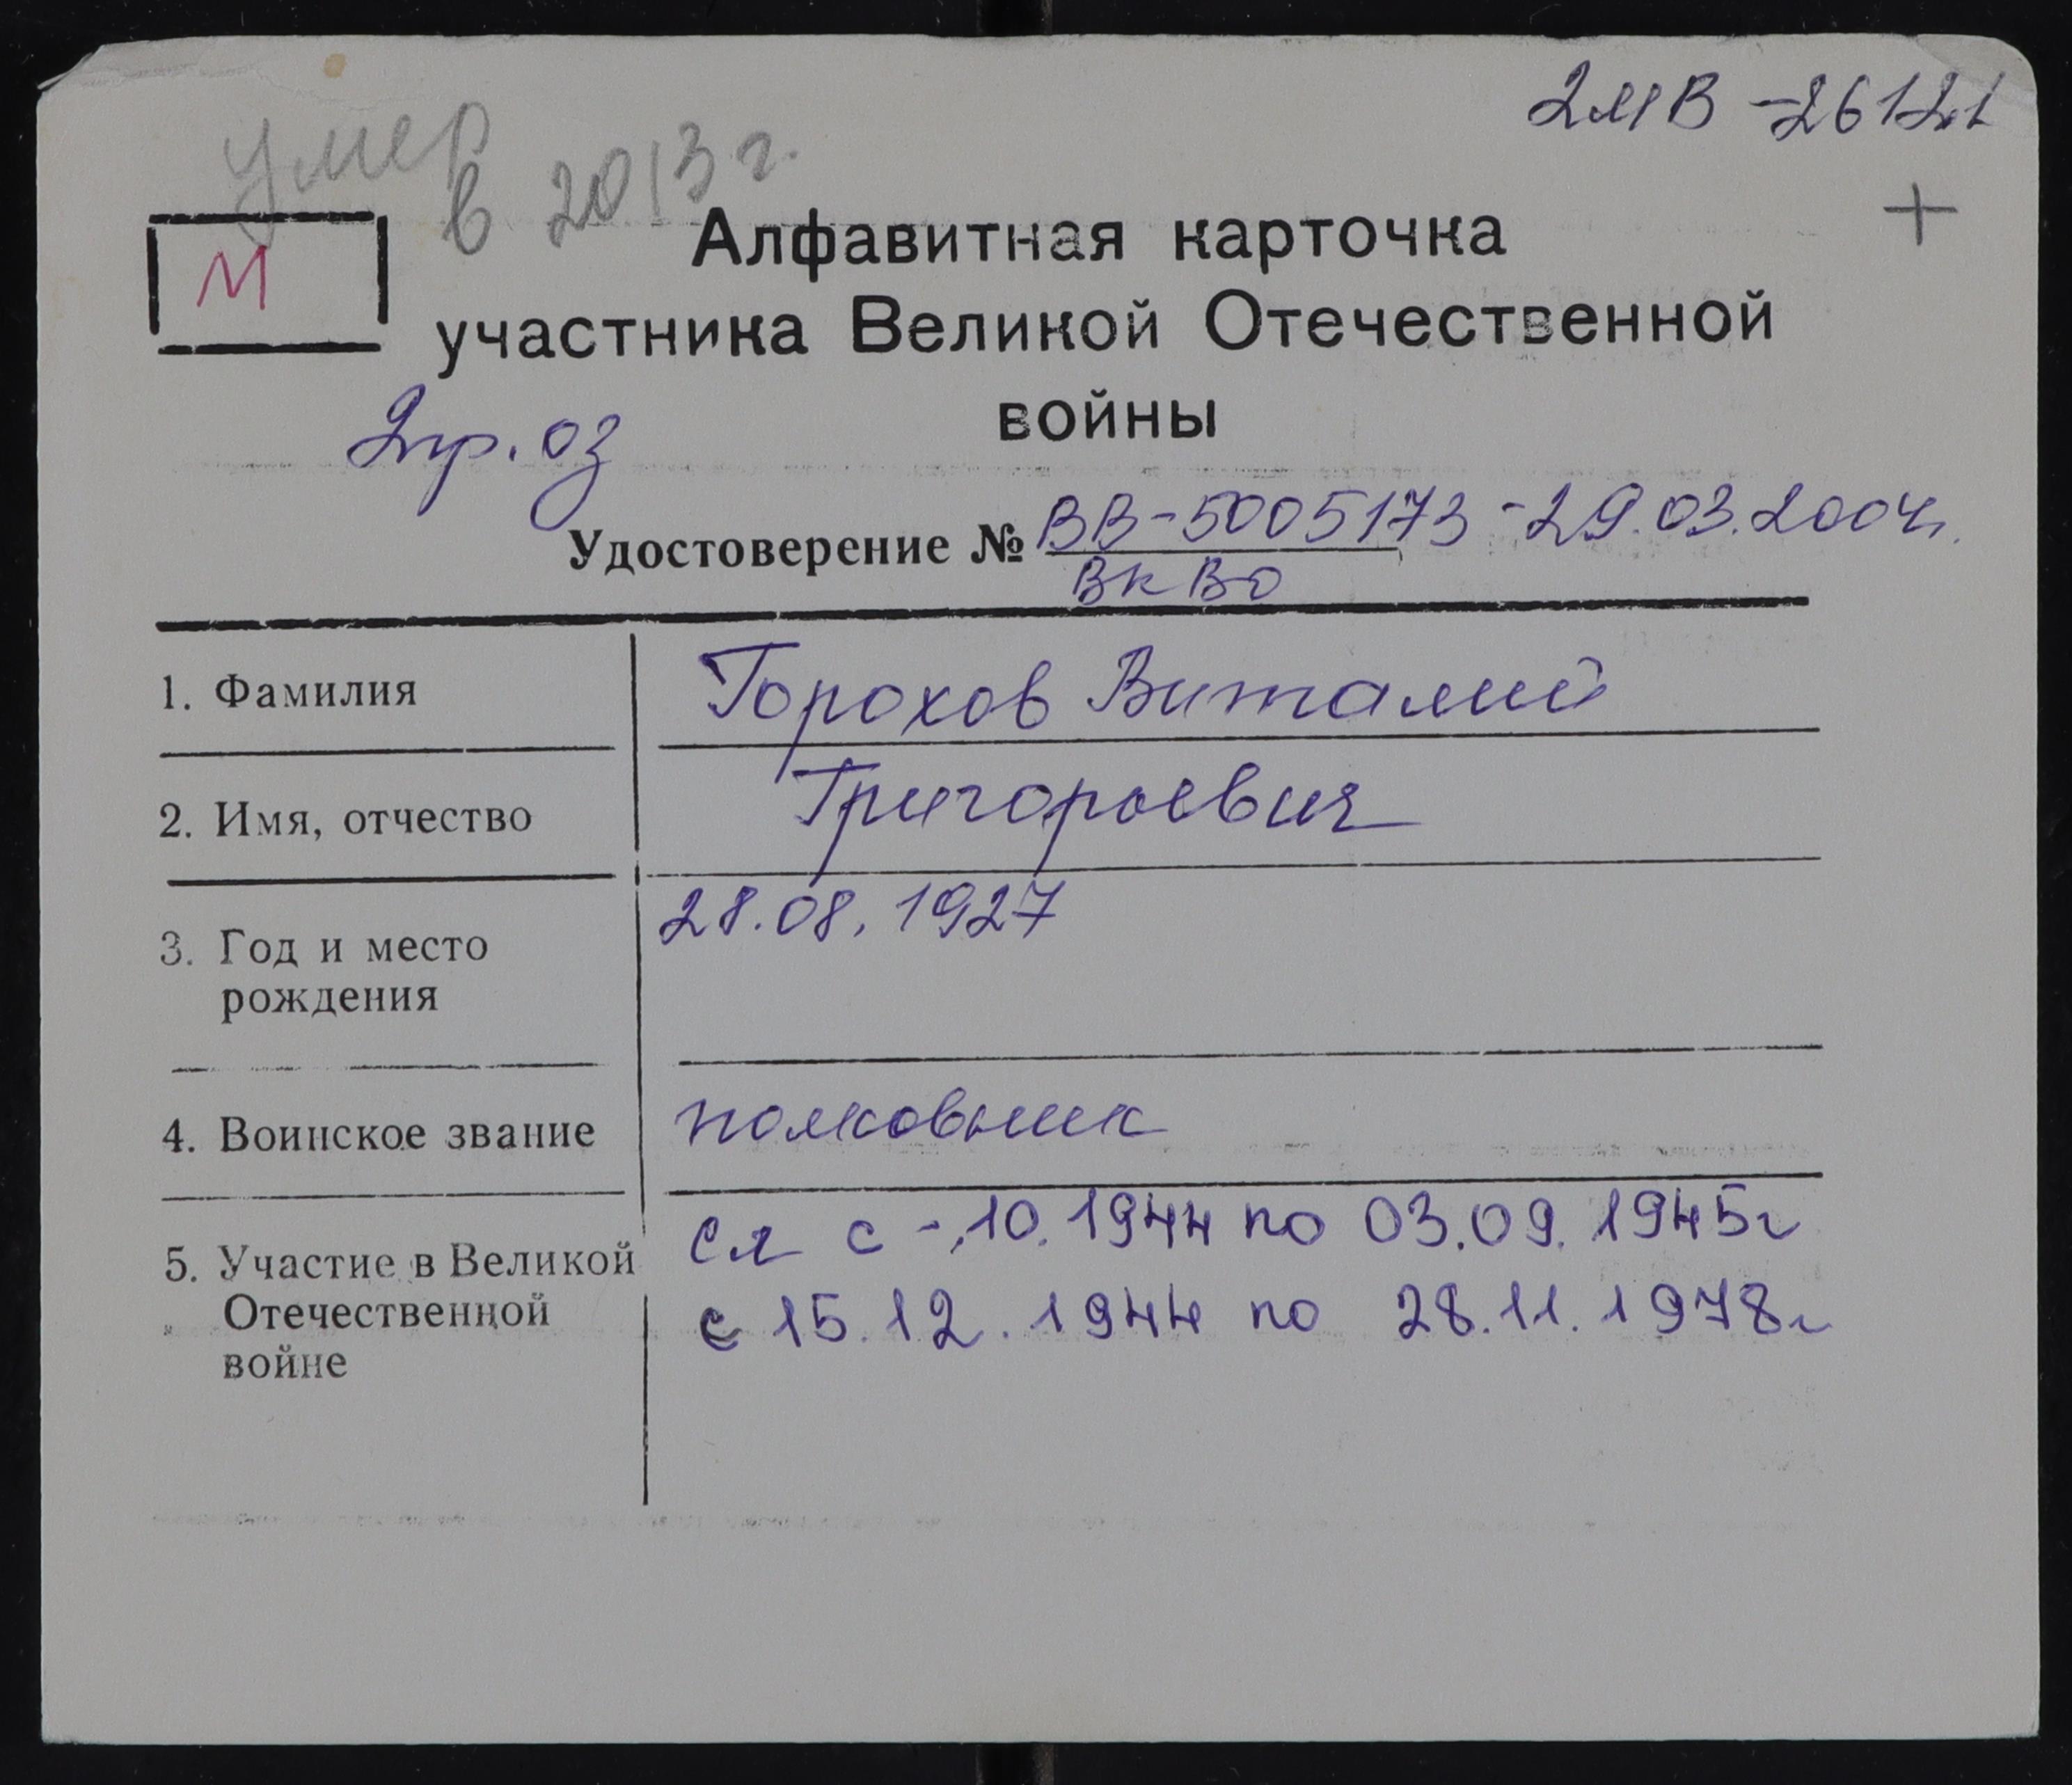 умер
в 2013 г.
2МВ - 26121
+
М
Алфавитная карточка
участника Великой Отечественной
войны
2гр. оз
Удостоверение № ВВ-5005173 - 29.03.2004г.
ВкВО
1. Фамилия Горохов Виталий
2. Имя, отчество Григорьевич
3. Год и место 28.08.1927
рождения
4. Воинское звание полковник
5. Участие в Великой сл с -.10.1944 по 03.09.1945г
Отечественной с 15.12.1944 по 28.11.1978г
войне